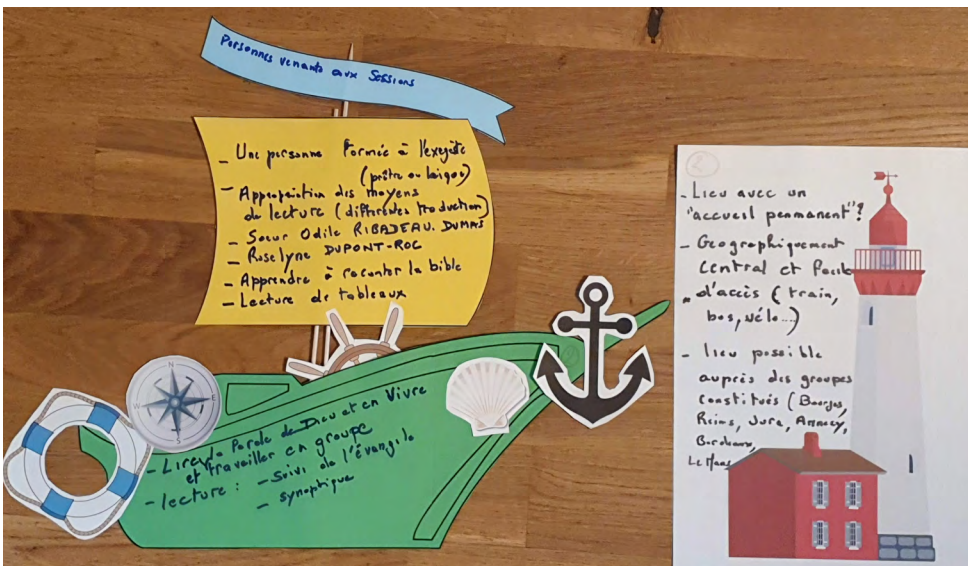 Personnes venants aux Sessions
- Une personne formée à l'exegète
(prêtre ou laïque)
- Appropriation des moyens
de lecture (différentes traduction)
- Soeur Odile RIBADEAU. DUMAS
- Roselyne DUPONT-ROC
- Apprendre à raconter la bible
- Lecture de tableaux
N
E
S
W
- Lire la Parole de Dieu et en Vivre
et travailler en groupe
- lecture : - Suivi de l'évangile
- synoptique
2
- Lieu avec un
"accueil permanent"?
- Geographiquement
central et facile
d'accès (train,
bus, vélo...)
- lieu possible
auprès des groupes
constitués (Bourges,
Reims, Jura, Annecy,
Bordeaux,
Le Mans